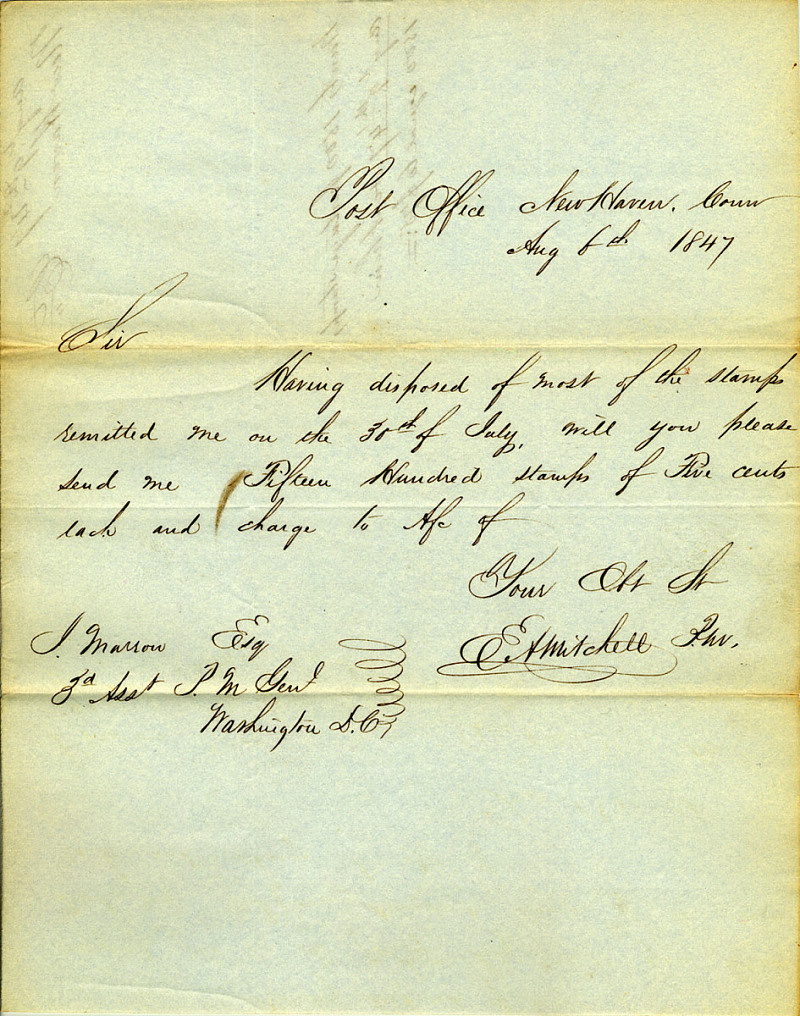 Post Office New Haven. Conn
Aug 6th 1847
Sir
Having disposed of most of the stamps
remitted me on the 30th of July, will you please
send me Fifteen Hundred stamps of Five cents
each and charge to A/c of
Your Obt St
E A Mitchell P.M.
J. Marron Esq
3d Asst P. M Genl
Washington D.C